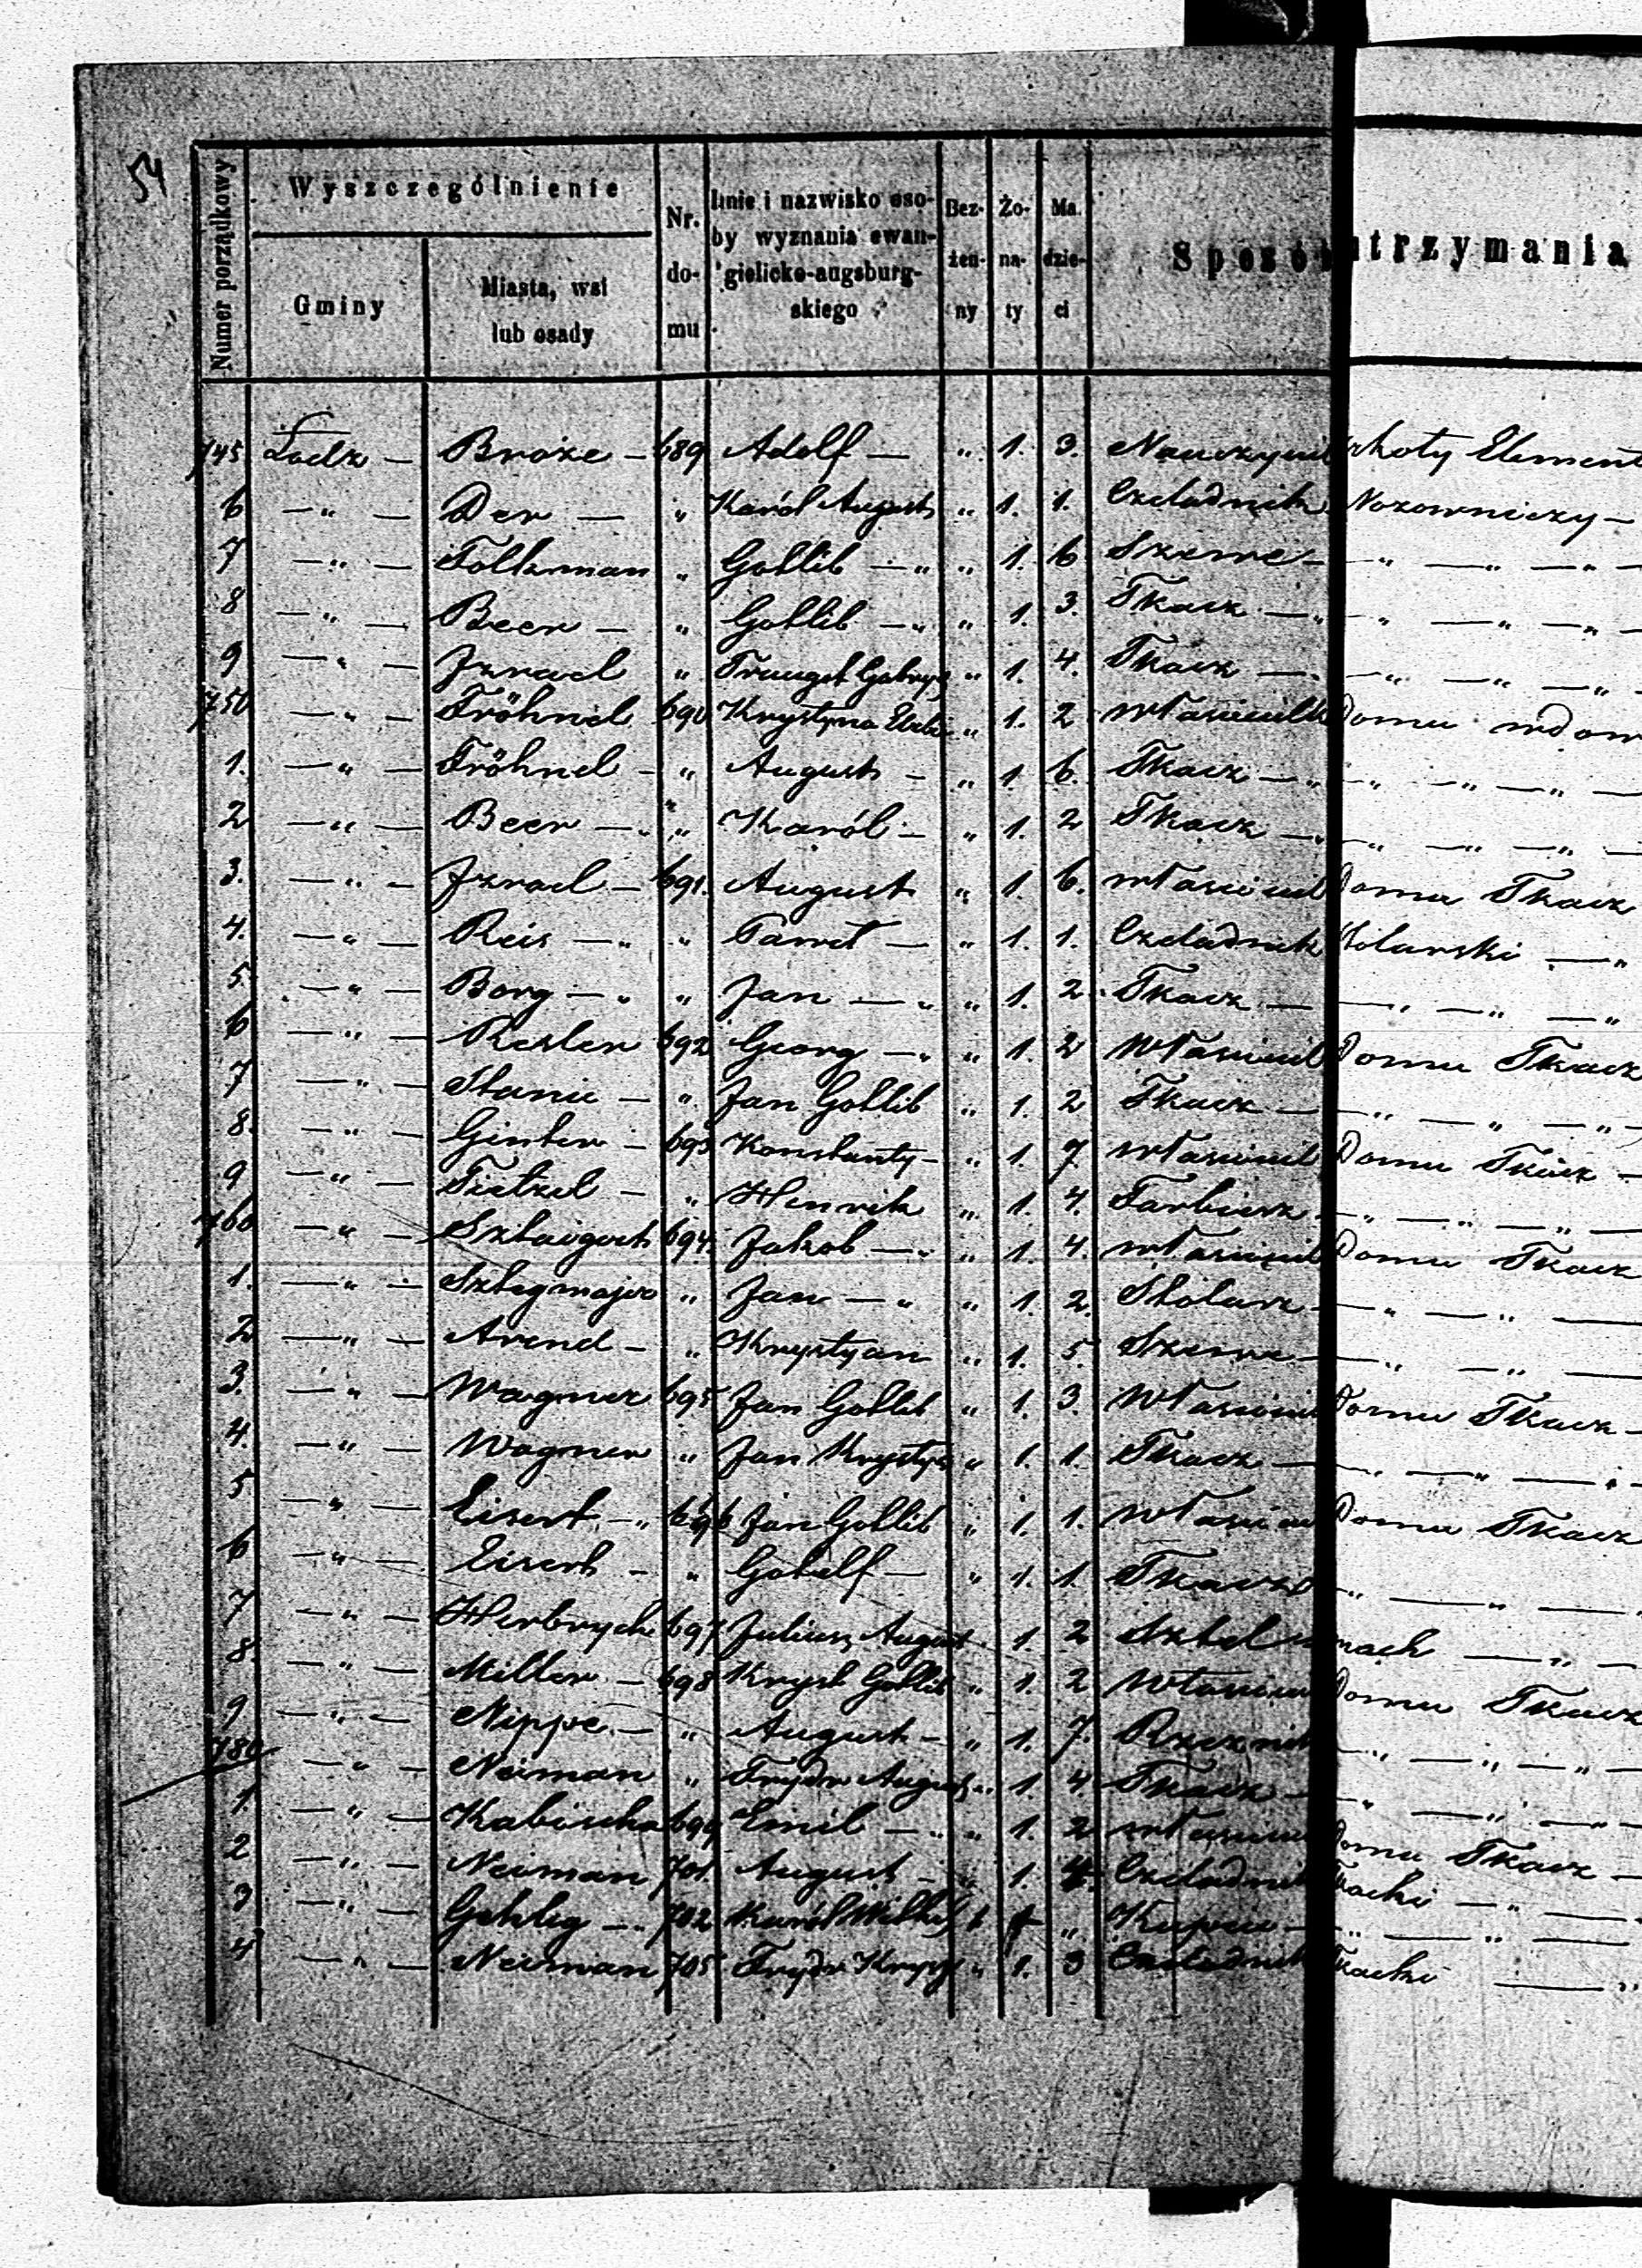 54
Numer porządkowy
Wyszczególnienie
Gminy
Miasta, wsi lub osady
Nr. do- mu
Imie i nazwisko oso- by wyznania ewan- gielicko-augsburg- skiego
Bez- żen- ny
Żo- na- ty
Ma. dzie- ci
Sposób utrzymania
745 Łodz — Broze — 689 Adolf — " 1. 3. Nauczyciel szkoły Element
6 — " — Der — " Karól August " 1. 1. Czeladnik Nozowniczy —
7 — " — Folkman " Gotlib — " " 1. 6 Szewc — " — " — " —
8 — " — Beer — " Gotlib — " " 1. 3. Tkacz — " — " — " —
9 — " — Izrael " Traugot " 1. 4. Tkacz — " — " — " —
750 — " — Fröhnel 690 Krystyna " 1. 2 właściciel Domu wdow
1. — " — Fröhnel — " August — " 1. 6. Tkacz — " — " — " —
2 — " — Beer — " " Karól — " 1. 2 Tkacz — " — " — " —
3. — " — Izrael — 691. August " 1. 6. właściciel Domu Tkacz
4. — " — Reis — " " Paweł — " 1. 1. Czeladnik Stolarski — "
5 — " — Borg — " " Jan — " " 1. 2. Tkacz — " — " — "
6 — " — Resler 692 Georg — " " 1. 2 Właściciel Domu Tkacz
7 — " — Stanie — " Jan Gotlib " 1. 2 Tkacz — " — " — " —
8. — " — Ginter — 693 Konstanty — " 1. 7. właściciel Domu Tkacz —
9 — " — Tietzel — " Henrik " 1. 4. Farbierz — " — " — " —
760 — " — 694. Jakob — " " 1. 4. właściciel Domu Tkacz
1. — " — Szlegmajer " Jan — " " 1. 2. Stolarz — " — " —
2 — " — Arend — " Krystyan " 1. 5. Szewc — " — " —
3. — " — Wagner 695 Jan Gotlib " 1. 3. Właściciel Domu Tkacz —
4. — " — Wagner " Jan " 1. 1. Tkacz — " — " — " —
5 — " — Eisert — " 696 Jan Gotlib " 1. 1. Właściciel Domu Tkacz
6 — " — Eisert — " Gotelf — " 1. 1. Tkacz — " — " —
7 — " — Herbrych 697 Juliusz August " 1. 2 Sztelmach — " —
8. — " — Miller — 698 Kryst Gotlib " 1. 2 Właściciel Domu Tkacz
9 — " — Nippe — " August — " 1. 7. Rzeznik — " — " — " —
780 — " — Neiman " Frydr August " 1. 4. Tkacz — " — " —
1. — " — Kabischa 699 Emil — " " 1. 2 właściciel Domu Tkacz —
2 — " — Neiman 701. August — " 1. 4. Czeladnik Tkacki — " —
3 — " — 702 Karól Wilhel 1 " Kupiec — " — " —
4 — " — Neiman 705 Frydr " 1. 3 Czeladnik Tkacki — "